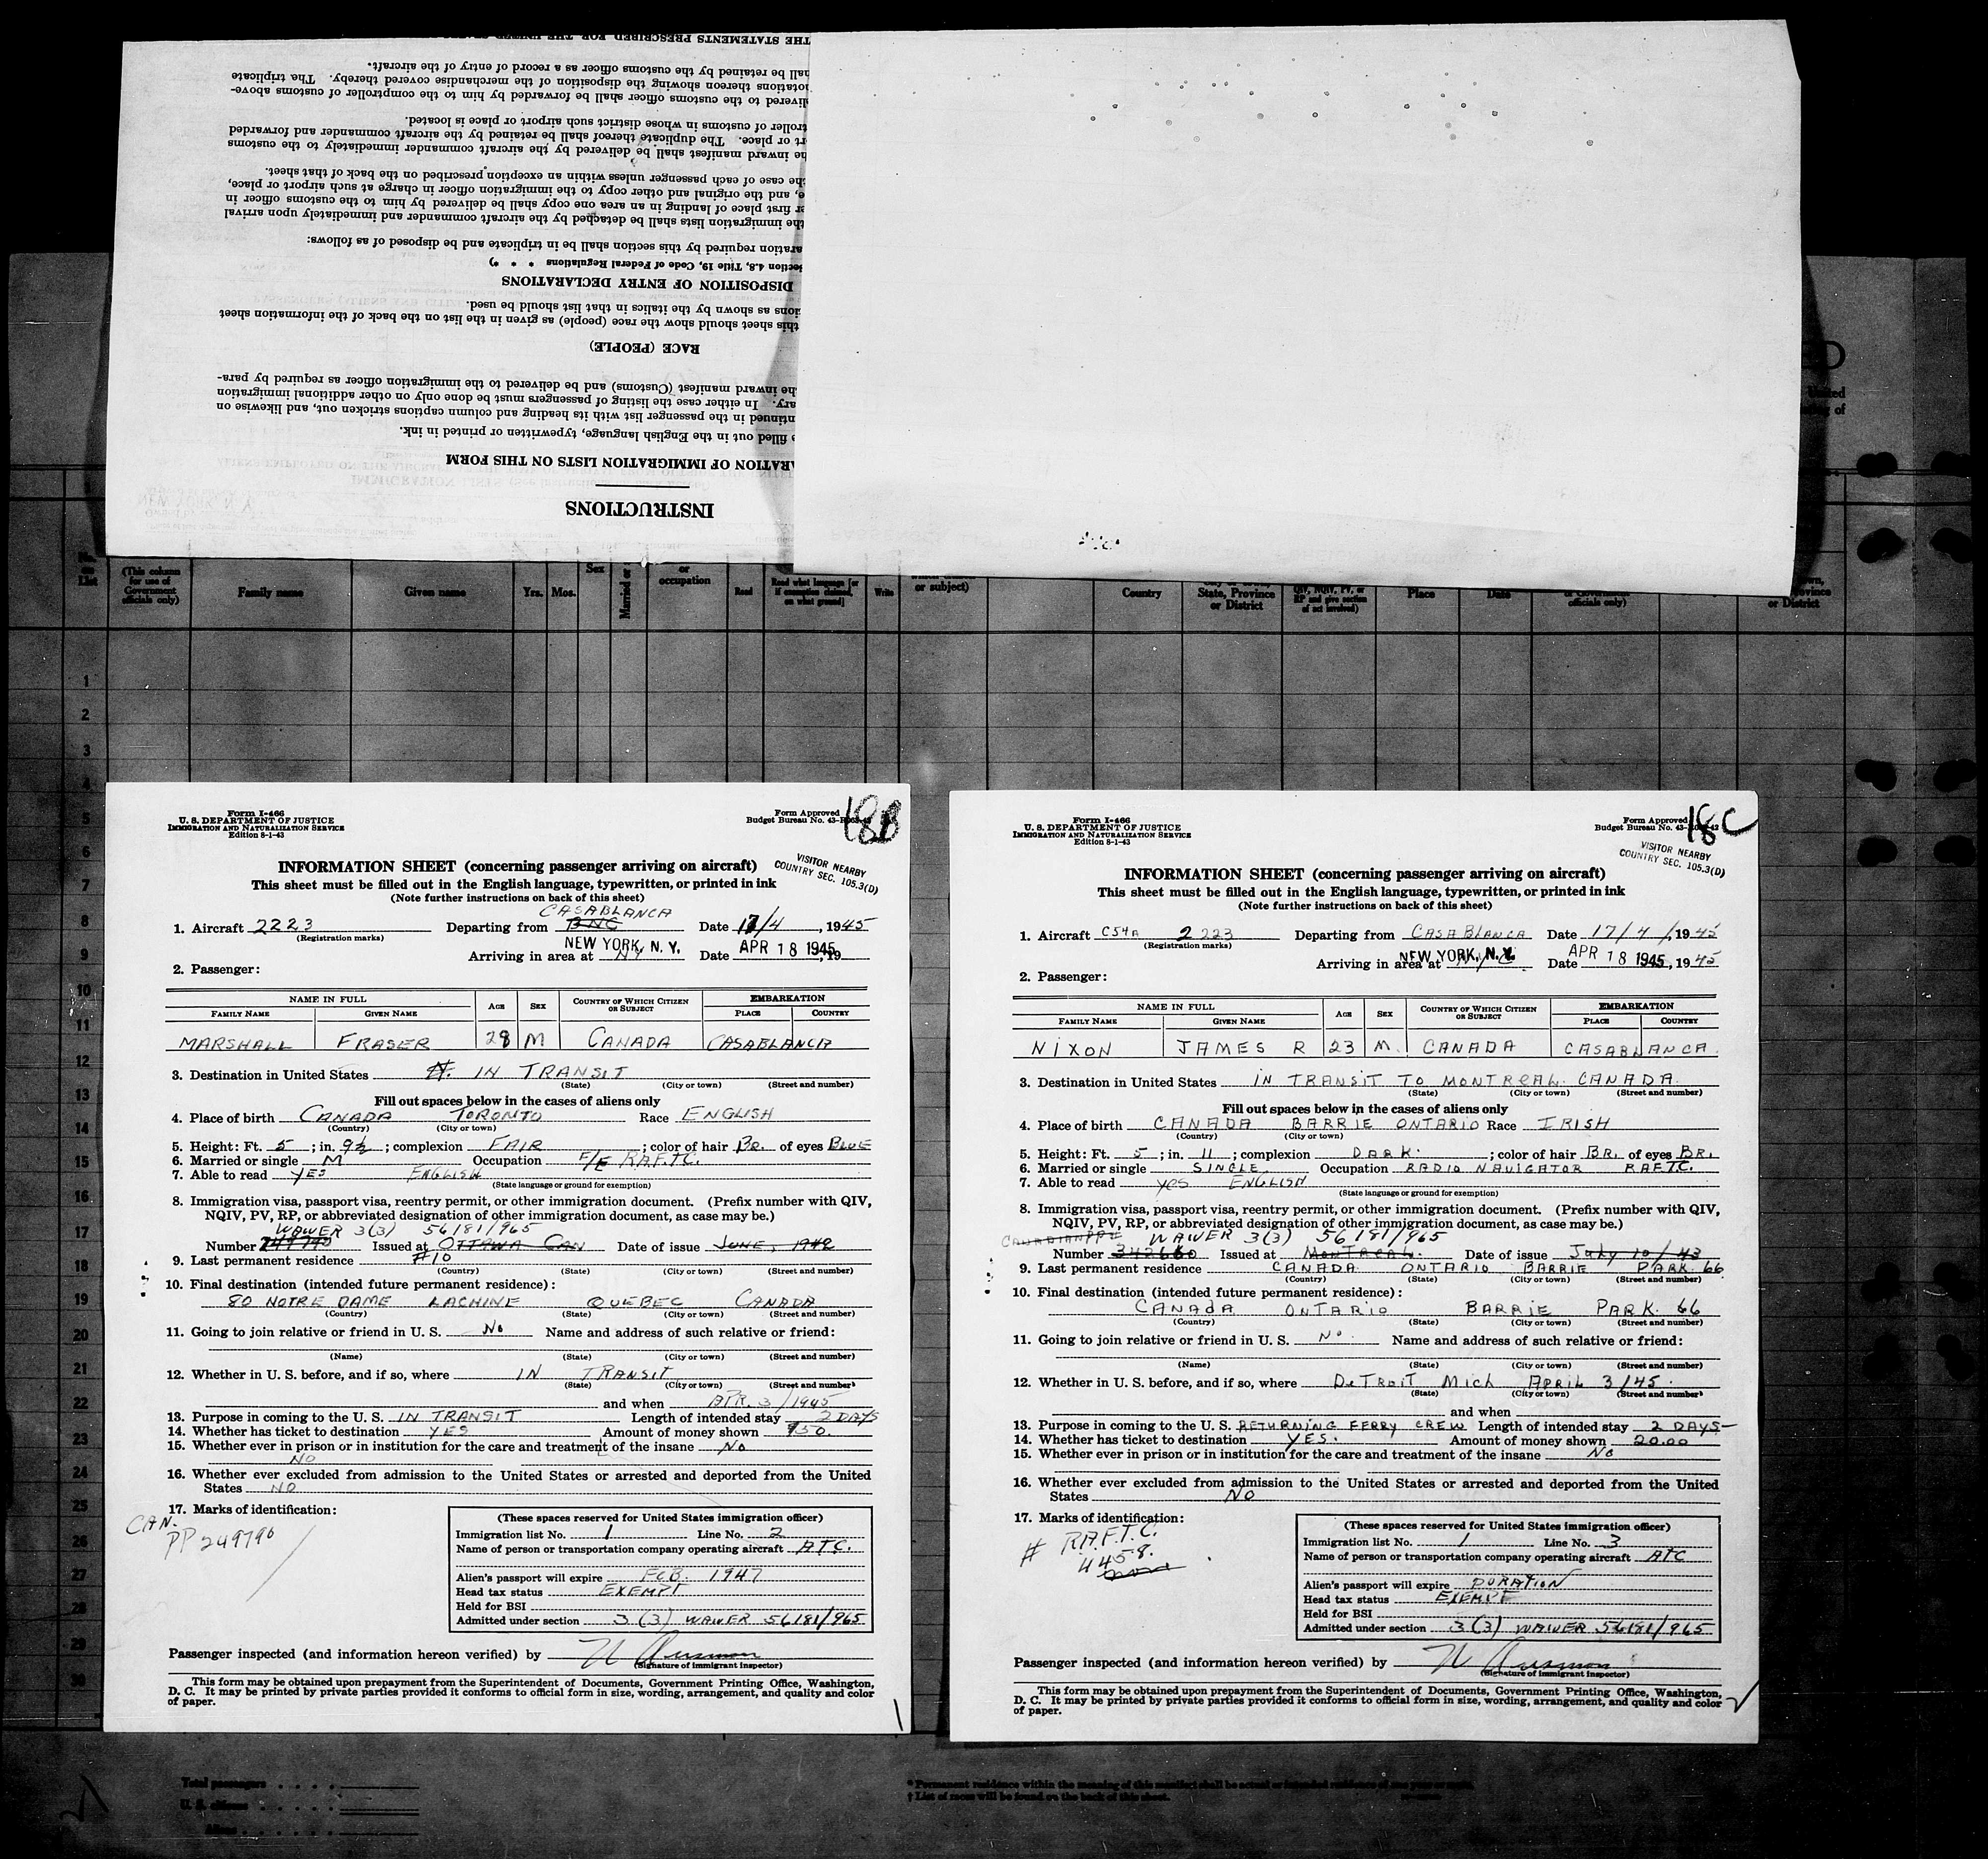 THE STATEMENTS PRESCRIBED FOR THE UNDER
hall be retained by the customs officer as a record of entry of the aircraft.
notations thereon showing the disposition of the merchandise covered thereby. The triplicate
livered to the customs officer shall be forwarded by him to the comptroller of customs above-
troller of customs in whose district such airport or place is located.
rt or place. The duplicate thereof shall be retained by the aircraft commander and forwarded
he inward manifest shall be delivered by the aircraft commander immediately to the customs
the case of each passenger unless within an exception prescribed on the back of that sheet.
e, and the original and other copy to the immigration officer in charge at such airport or place,
er first place of landing in an area one copy shall be delivered by him to the customs officer in
the immigration lists shall be detached by the aircraft commander and immediately upon arrival
aration required by this section shall be in triplicate and be disposed of as follows:
ection 4.8, Title 19, Code of Federal Regulations * * *)
DISPOSITION OF ENTRY DECLARATIONS
ions as shown by the italics in that list should be used.
this sheet should show the race (people) as given in the list on the back of the information sheet
RACE (PEOPLE)
he inward manifest (Customs) and be delivered to the immigration officer as required by para-
ary. In either case the listing of passengers must be done only on other additional immigration
ntinued in the passenger list with its heading and column captions stricken out, and likewise on
e filled out in the English language, typewritten or printed in ink.
ARATION OF IMMIGRATION LISTS ON THIS FORM
INSTRUCTIONS
List (This column for use of Government officials only) Family name Given name Yrs. Mos. Sex Married or s or occupation Read Read what language [or if exemption claimed, on what ground] Write or subject) Country State, Province or District QIV, NQIV, PV, or RP and give section of act involved) Place Date officials only) or District
1
2
3
4
5
6
7
8
9
10
11
12
13
14
15
16
17
18
19
20
21
22
23
24
25
26
27
28
29
30
Form I-466
U. S. DEPARTMENT OF JUSTICE
IMMIGRATION AND NATURALIZATION SERVICE
Edition 8-1-43
Form Approved
Budget Bureau No. 43-
18B
VISITOR NEARBY
COUNTRY SEC. 105.3(D)
INFORMATION SHEET (concerning passenger arriving on aircraft)
This sheet must be filled out in the English language, typewritten, or printed in ink
(Note further instructions on back of this sheet)
CASABLANCA
1. Aircraft 2223 Departing from BNC Date 17/4, 1945
(Registration marks)
Arriving in area at NEW YORK, N. Y. NY Date APR 18 1945, 19
2. Passenger:
NAME IN FULL AGE SEX COUNTRY OF WHICH CITIZEN OR SUBJECT EMBARKATION
FAMILY NAME GIVEN NAME PLACE COUNTRY
MARSHALL FRASER 28 M CANADA CASABLANCA
3. Destination in United States IN TRANSIT
(State) (City or town) (Street and number)
Fill out spaces below in the cases of aliens only
4. Place of birth CANADA TORONTO Race ENGLISH
(Country) (City or town)
5. Height: Ft. 5; in. 9½; complexion FAIR; color of hair BR. of eyes BLUE
6. Married or single M Occupation F/E R.A.F.T.C.
7. Able to read YES ENGLISH
(State language or ground for exemption)
8. Immigration visa, passport visa, reentry permit, or other immigration document. (Prefix number with QIV,
NQIV, PV, RP, or abbreviated designation of other immigration document, as case may be.)
WAIVER 3(3) 56181/965
Number 249790 Issued at OTTAWA CAN Date of issue JUNE, 1942
9. Last permanent residence #10
(Country) (State) (City or town) (Street and number)
10. Final destination (intended future permanent residence):
80 NOTRE DAME LACHINE QUEBEC CANADA
(Country) (State) (City or town) (Street and number)
11. Going to join relative or friend in U. S. No Name and address of such relative or friend:
(Name) (State) (City or town) (Street and number)
12. Whether in U. S. before, and if so, where IN TRANSIT
(State) (City or town) (Street and number)
and when APR. 3/1945
13. Purpose in coming to the U. S. IN TRANSIT Length of intended stay 2 DAYS
14. Whether has ticket to destination YES Amount of money shown $50.
15. Whether ever in prison or in institution for the care and treatment of the insane No
NO
16. Whether ever excluded from admission to the United States or arrested and deported from the United
States NO
17. Marks of identification:
CAN.
PP 249790
(These spaces reserved for United States immigration officer)
Immigration list No. 1 Line No. 2
Name of person or transportation company operating aircraft ATC.
Alien's passport will expire FEB. 1947
Head tax status EXEMPT
Held for BSI
Admitted under section 3(3) WAIVER 56181/965
Passenger inspected (and information hereon verified) by
(Signature of immigrant inspector)
This form may be obtained upon prepayment from the Superintendent of Documents, Government Printing Office, Washington,
D. C. It may be printed by private parties provided it conforms to official form in size, wording, arrangement, and quality and color
of paper.
Form I-466
U. S. DEPARTMENT OF JUSTICE
IMMIGRATION AND NATURALIZATION SERVICE
Edition 8-1-43
Form Approved
Budget Bureau No. 43-
18C
VISITOR NEARBY
COUNTRY SEC. 105.3(D)
INFORMATION SHEET (concerning passenger arriving on aircraft)
This sheet must be filled out in the English language, typewritten, or printed in ink
(Note further instructions on back of this sheet)
1. Aircraft C54A 2223 Departing from CASABLANCA Date 17/4/, 1945
(Registration marks)
Arriving in area at NEW YORK, N. Y. Date APR 18 1945, 1945
2. Passenger:
NAME IN FULL AGE SEX COUNTRY OF WHICH CITIZEN OR SUBJECT EMBARKATION
FAMILY NAME GIVEN NAME PLACE COUNTRY
NIXON JAMES R 23 M. CANADA CASABLANCA.
3. Destination in United States IN TRANSIT TO MONTREAL CANADA
(State) (City or town) (Street and number)
Fill out spaces below in the cases of aliens only
4. Place of birth CANADA BARRIE ONTARIO Race IRISH
(Country) (City or town)
5. Height: Ft. 5; in. 11; complexion DARK.; color of hair BR. of eyes BR.
6. Married or single SINGLE Occupation RADIO NAVIGATOR RAFTC.
7. Able to read yes ENGLISH
(State language or ground for exemption)
8. Immigration visa, passport visa, reentry permit, or other immigration document. (Prefix number with QIV,
NQIV, PV, RP, or abbreviated designation of other immigration document, as case may be.)
WAIVER 3(3) 56181/965
Number Issued at MONTREAL. Date of issue July 10/43
9. Last permanent residence CANADA ONTARIO BARRIE PARK. 66
(Country) (State) (City or town) (Street and number)
10. Final destination (intended future permanent residence):
CANADA ONTARIO BARRIE PARK. 66
(Country) (State) (City or town) (Street and number)
11. Going to join relative or friend in U. S. No. Name and address of such relative or friend:
(Name) (State) (City or town) (Street and number)
12. Whether in U. S. before, and if so, where DETROIT Mich APRIL 3/45.
(State) (City or town) (Street and number)
and when
13. Purpose in coming to the U. S. RETURNING FERRY CREW Length of intended stay 2 DAYS
14. Whether has ticket to destination YES. Amount of money shown 20.00
15. Whether ever in prison or in institution for the care and treatment of the insane No
16. Whether ever excluded from admission to the United States or arrested and deported from the United
States NO
17. Marks of identification:
# R.A.F.T.C.
4458.
(These spaces reserved for United States immigration officer)
Immigration list No. 1 Line No. 3
Name of person or transportation company operating aircraft ATC
Alien's passport will expire DURATION
Head tax status EXEMPT
Held for BSI
Admitted under section 3(3) WAIVER 56181/965
Passenger inspected (and information hereon verified) by
(Signature of immigrant inspector)
This form may be obtained upon prepayment from the Superintendent of Documents, Government Printing Office, Washington,
D. C. It may be printed by private parties provided it conforms to official form in size, wording, arrangement, and quality and color
of paper.
Total passengers
U. S. citizens
Aliens
* Permanent residence within the meaning of this manifest shall be actual or intended residence of one year or more.
† List of races will be found on the back of this sheet.